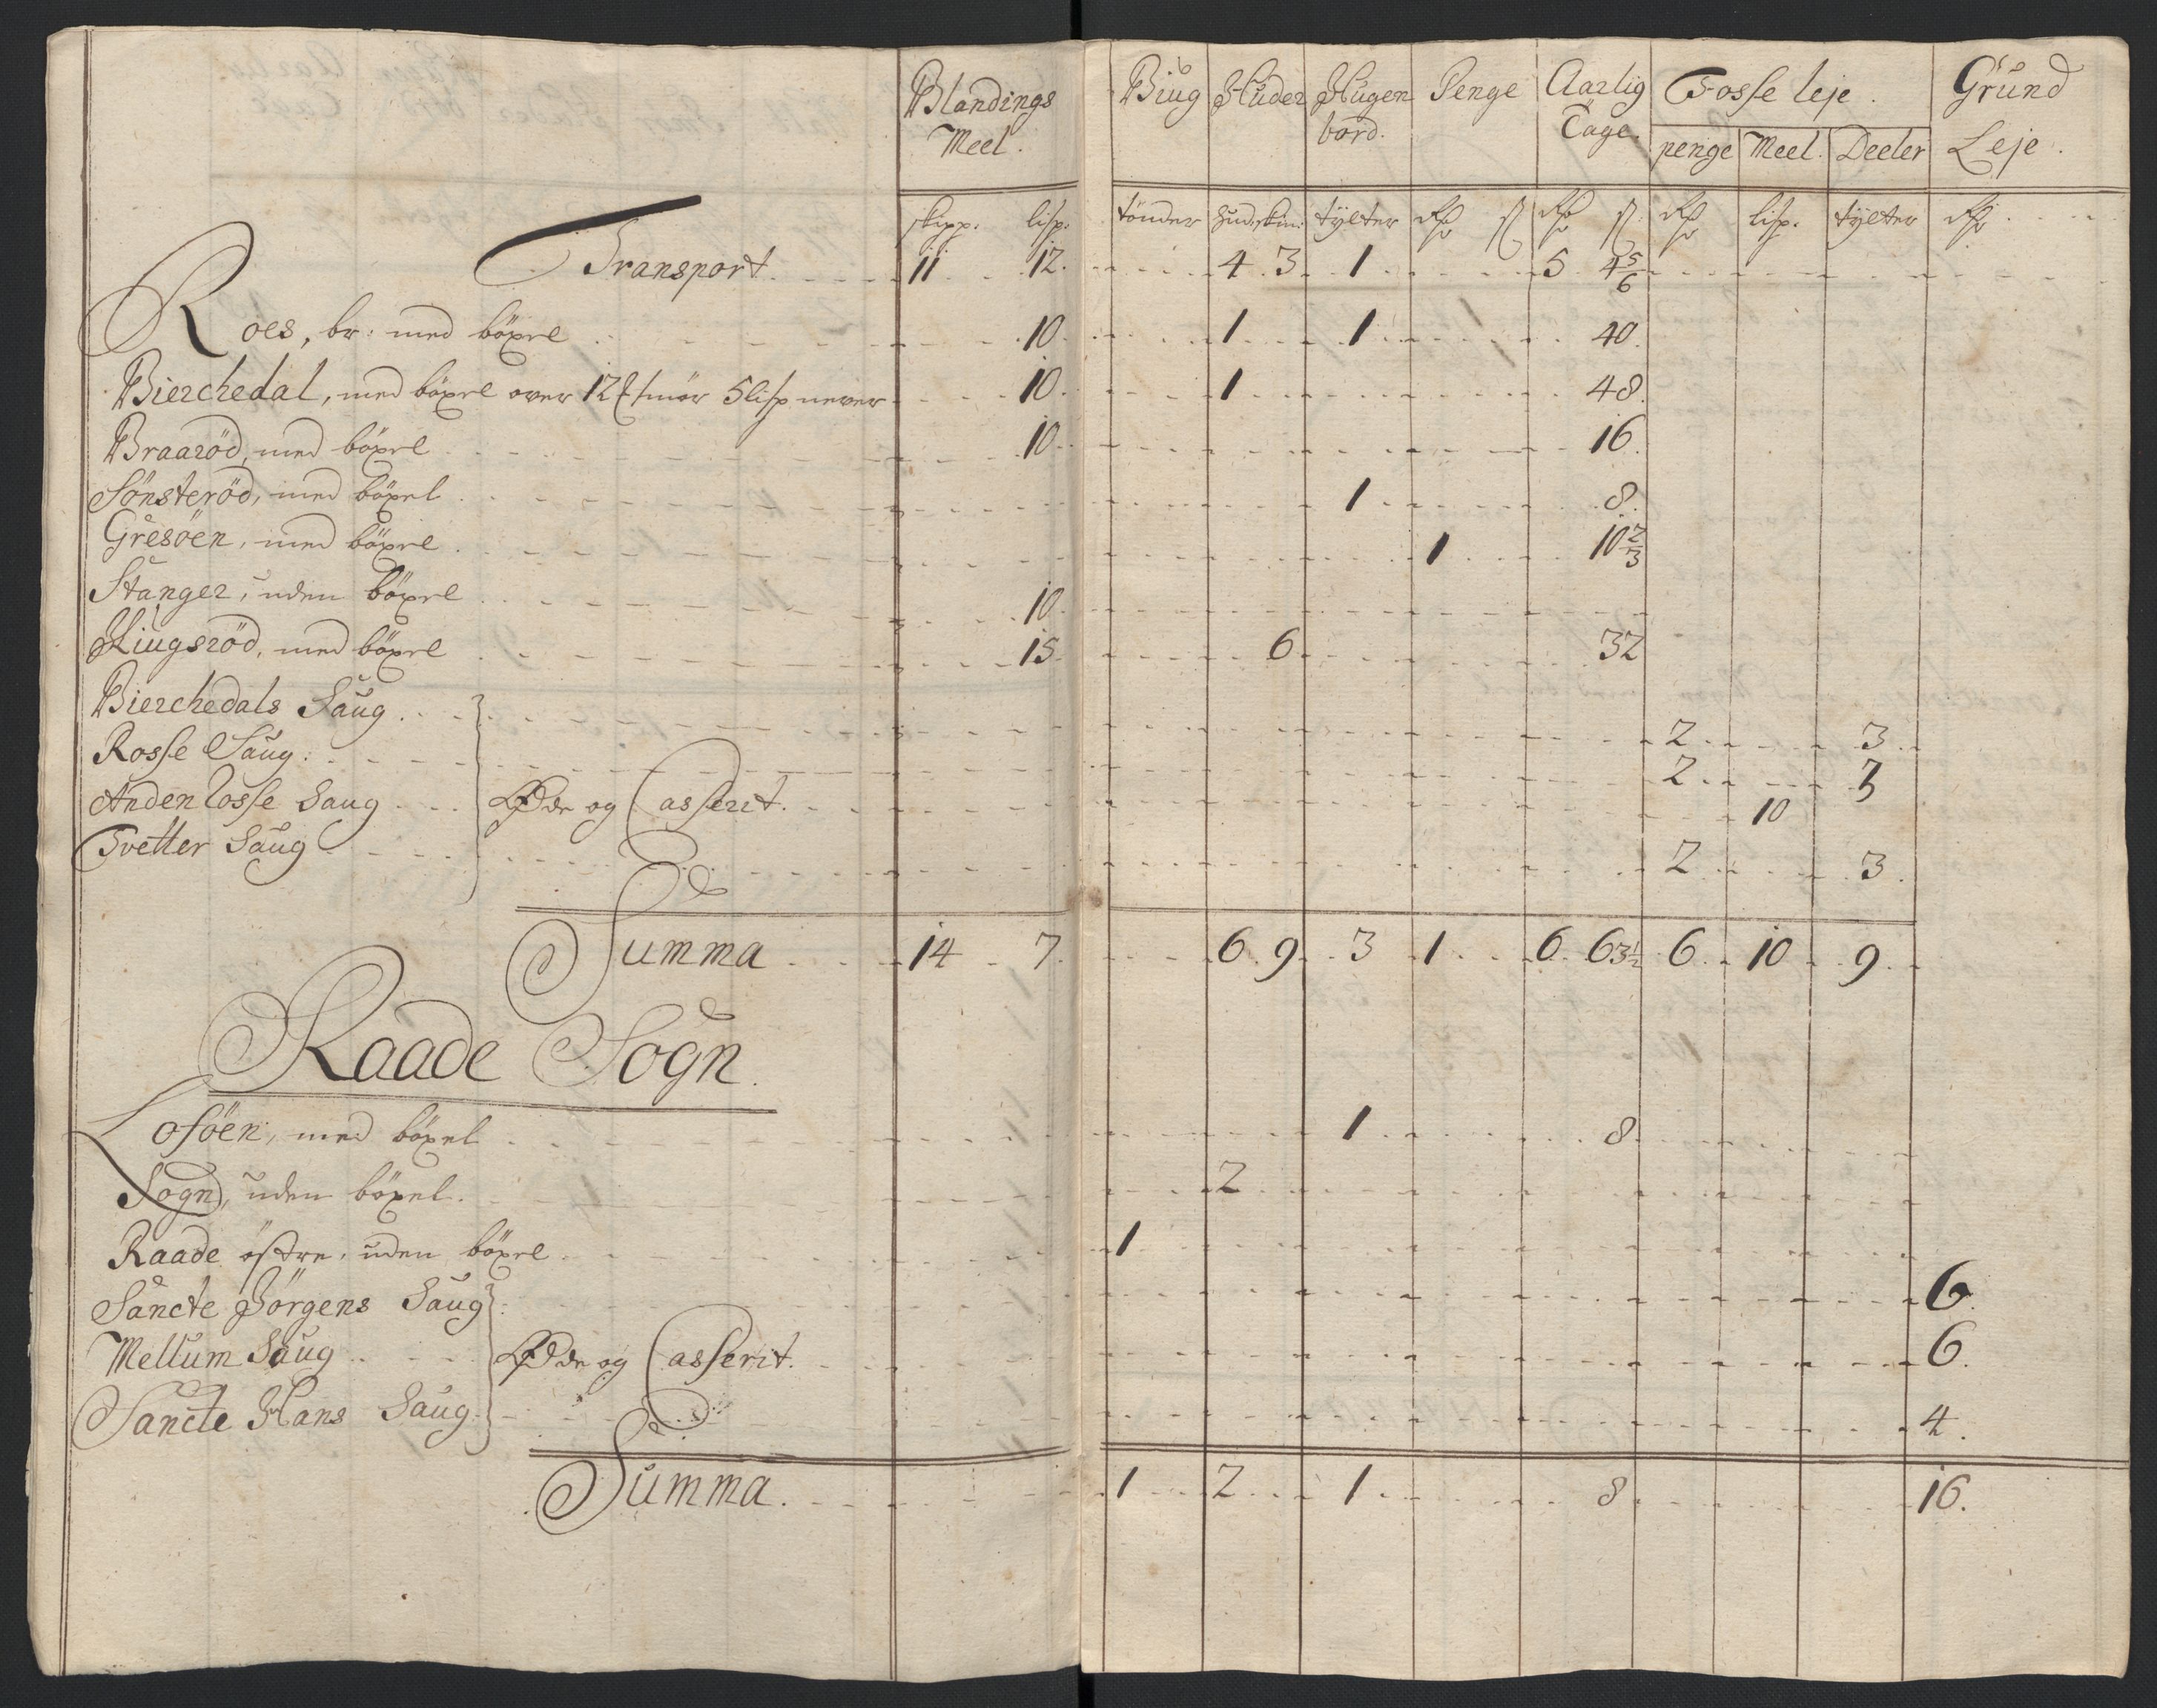 Blandings Biug Huder Hugen Penge Aarlig Fosse leje. Grund
Meel. bord. Tage. penge Meel. Deeler Leje.
skipp. lisp. tönder hud. skin: tÿlter rdr ß rdr ß. rdr lisp. tÿlter rdr
Transport 11 12. 4. 3 1 5 4 5/6
Roes, br: med böxel 10. 1 1 40.
Bierchedal, med böxel over 12 ℔ smör 5 lisp never 10. 1 48.
Braaröd, med böxel 10. 16.
Sönsteröd, med böxel 1 8.
Gresöen, med böxel 1 10 2/3
Stanger, uden böxel 10.
Kiugsröd, med böxel 15. 6. 32
Bierchedals Saug 2 3.
Rosse Saug: 2 3
Anden Rosse Saug Øde og Casserit. 10
Tvetter Saug 2 3.
Summa 14 7. 6. 9 3 1 6. 63 1/2 6. 10 9.
Raade Sogn.
Losöen, med böxel 1 8.
Sogn, uden böxel. 2
Raade östre, uden böxel 1
Sancte Jörgens Saug 6.
Mellum Saug Øde og Casserit. 6.
Sancte Hans Saug 4.
Summa. 1 2 1 8. 16.